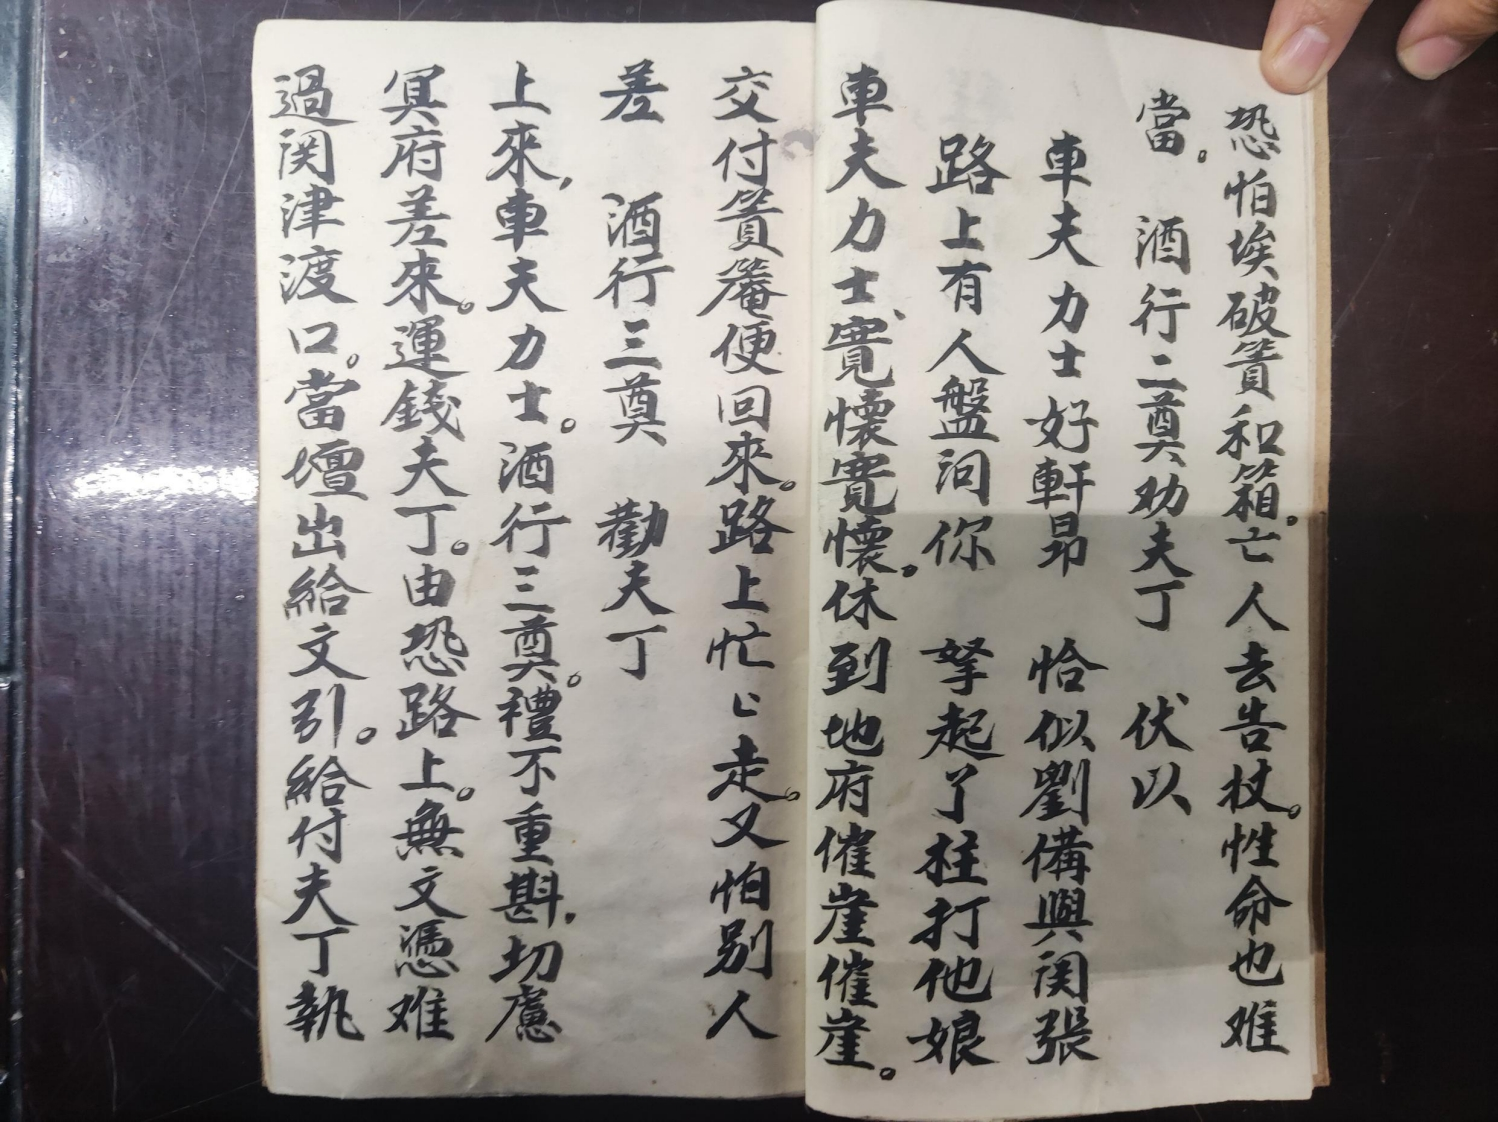 恐怕埃破篢和箱。亡人去告杖。性命也难
當。 酒行二奠劝夫丁 伏以
車夫力士好軒昂 恰似劉備與関張
路上有人盤问你 拏起了拄打他娘
車夫力士、寬懷寬懷。休到地府催崖催崖。
交付篢簽便回來。路上忙〻走。又怕别人
差 酒行三奠 勸夫丁
上來，車夫力士。酒行三奠。禮不重斟，切慮
冥府差來。運錢夫丁。由恐路上。無文憑难
過関津渡口。當壇出給文引。給付夫丁執